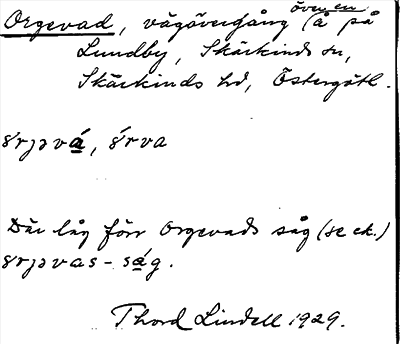 Orgevad, vägövergång över en å på
Lundby, Skärkinds sn,
Skärkinds hd, Östergötl.
8rjəvá, 8́rva
Där låg förr Orgevads såg (se ek.)
8rjəvas-såg.
Thord Lindell 1929.